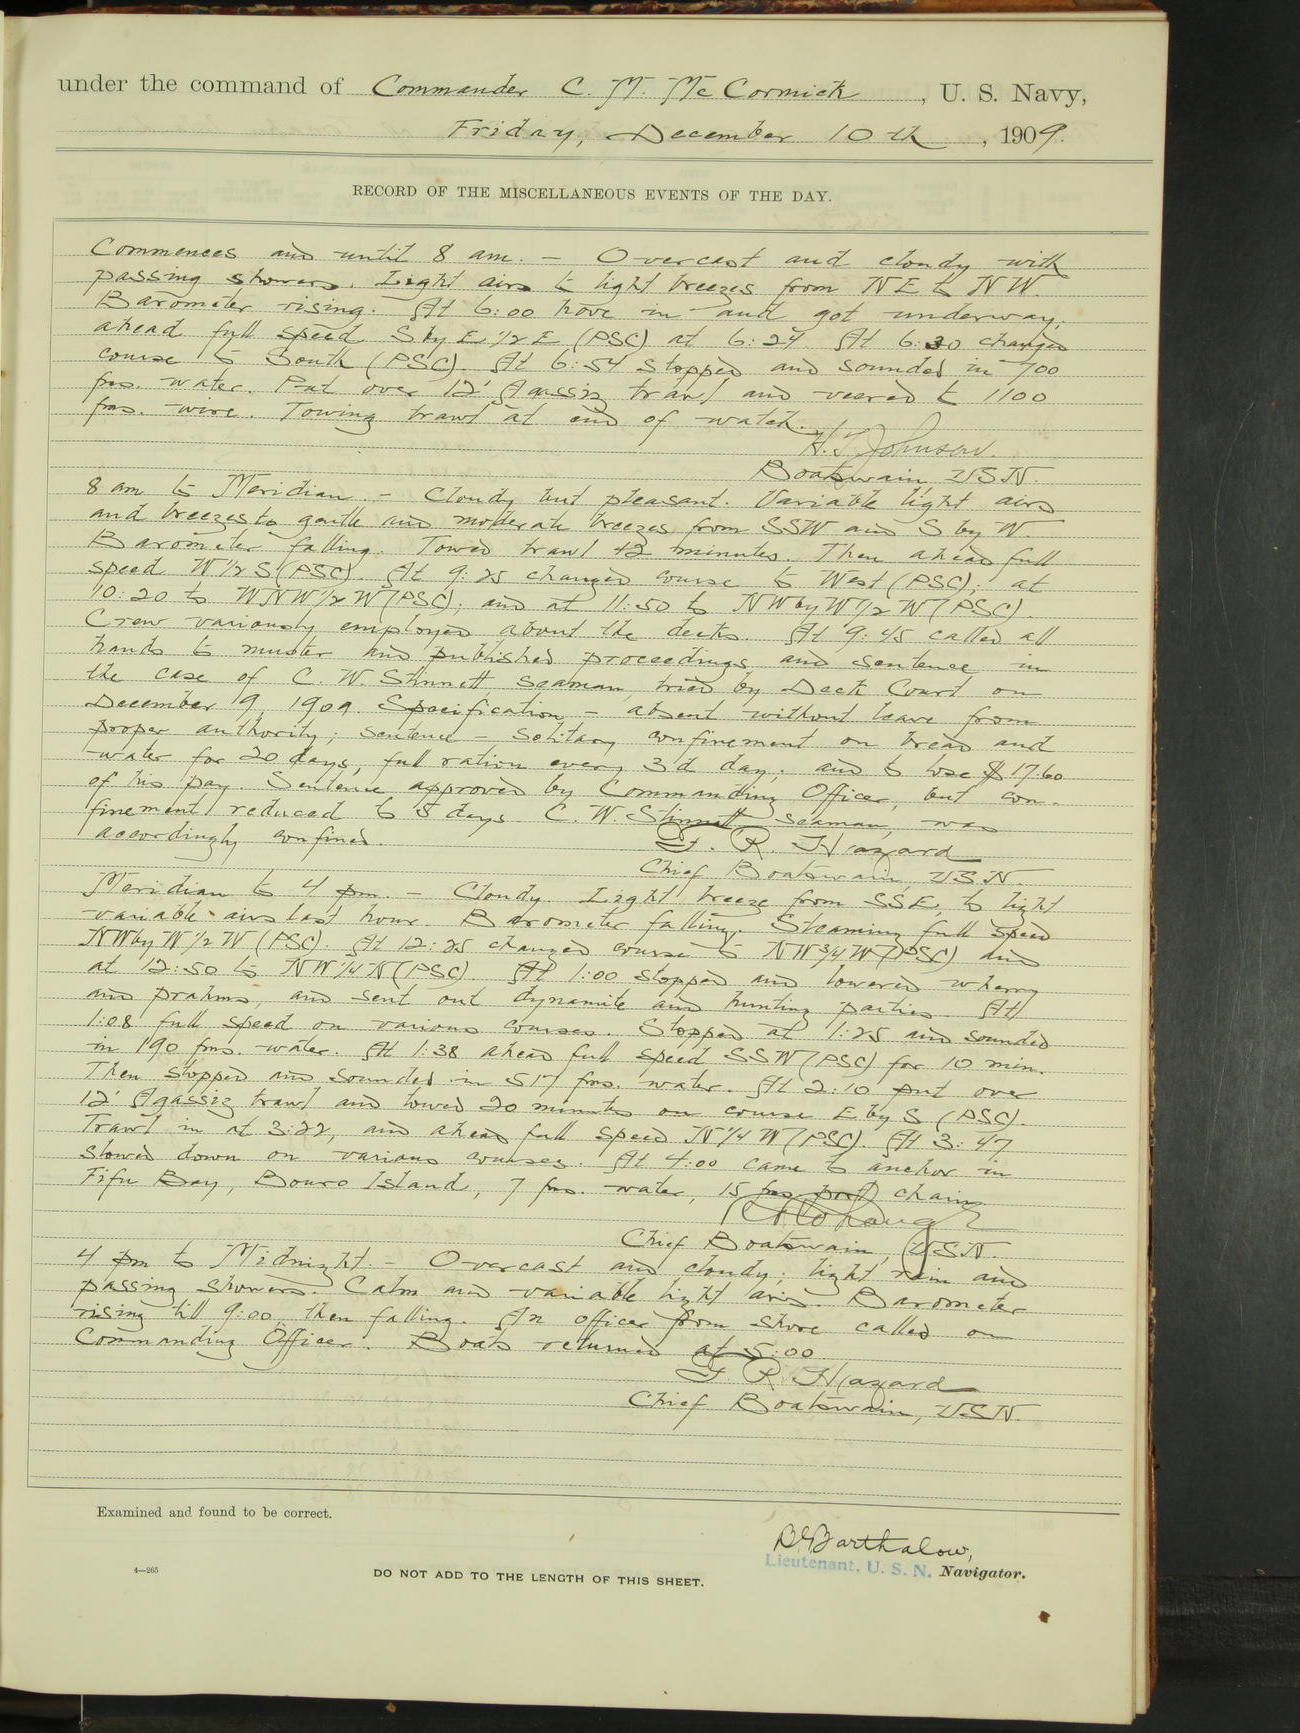 under the command of Commander C. M. McCormick, U. S. Navy,
Friday, December 10th, 1909.
RECORD OF THE MISCELLANEOUS EVENTS OF THE DAY.
Commences and until 8 am. – Overcast and cloudy with
passing showers. Light airs to light breezes from NE to NW.
Barometer rising. At 6:00 hove in and got underway,
ahead full speed S by E 1/2 E (PSC) at 6:24 At 6:30 changed
course to South (PSC). At 6:54 stopped and sounded in 700
fms. water. Put over 12' Agassiz trawl and veered to 1100
fms. wire. Towing trawl at end of watch.
H. T. Johnson.
Boatswain USN.
8 am to Meridian. – Cloudy but pleasant. Variable light airs
and breezes to gentle and moderate breezes from SSW and S by W.
Barometer falling. Towed trawl 42 minutes. Then ahead full
speed W 1/2 S (PSC). At 9:25 changed course to West (PSC); at
10:20 to WNW 1/2 W (PSC); and at 11:50 to NW by W 1/2 W (PSC).
Crew variously employed about the decks. At 9:45 called all
hands to muster and published proceedings and sentence in
the case of C. W. Stinnett, seaman, tried by Deck Court on
December 9, 1909. Specification – absent without leave from
proper authority; sentence – solitary confinement on bread and
water for 20 days, full ration every 3d day; and to lose $17.60
of his pay. Sentence approved by Commanding Officer, but con-
finement reduced to 5 days. C. W. Stinnett seaman, was
accordingly confined.
F. R. Hazard
Chief Boatswain, USN.
Meridian to 4 pm. – Cloudy. Light breeze from SSE, to light
variable airs last hour. Barometer falling. Steaming full speed
NW by W 1/2 W (PSC). At 12:25 changed course to NW 3/4 W (PSC) and
at 12:50 to NW 1/4 N (PSC). At 1:00 stopped and lowered wherry
and prahms, and sent out dynamite and hunting parties. At
1:08 full speed on various courses. Stopped at 1:25 and sounded
in 190 fms. water. At 1:38 ahead full speed SSW (PSC) for 10 min.
Then stopped and sounded in 517 fms. water. At 2:10 put over
12' Agassiz trawl and towed 20 minutes on course E by S (PSC).
Trawl in at 3:22, and ahead full speed N 1/4 W (PSC). At 3:47
slowed down on various courses. At 4:00 came to anchor in
Tifu Bay, Bouro Island, 7 fms. water, 15 fms port chain
Chief Boatswain, USN.
4 pm to Midnight. – Overcast and cloudy; light rain and
passing showers. Calm and variable light airs. Barometer
rising till 9:00 then falling. An officer from shore called on
Commanding Officer. Boats returned at 5:00
F. R. Hazard
Chief Boatswain, USN.
Examined and found to be correct.
Barthalow,
Lieutenant, U. S. N. Navigator.
4—265
DO NOT ADD TO THE LENGTH OF THIS SHEET.